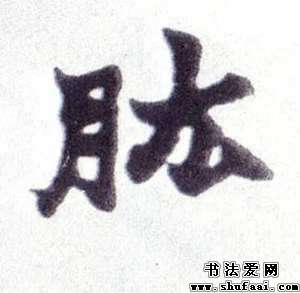 肱
书法爱网
www.shufaai.com